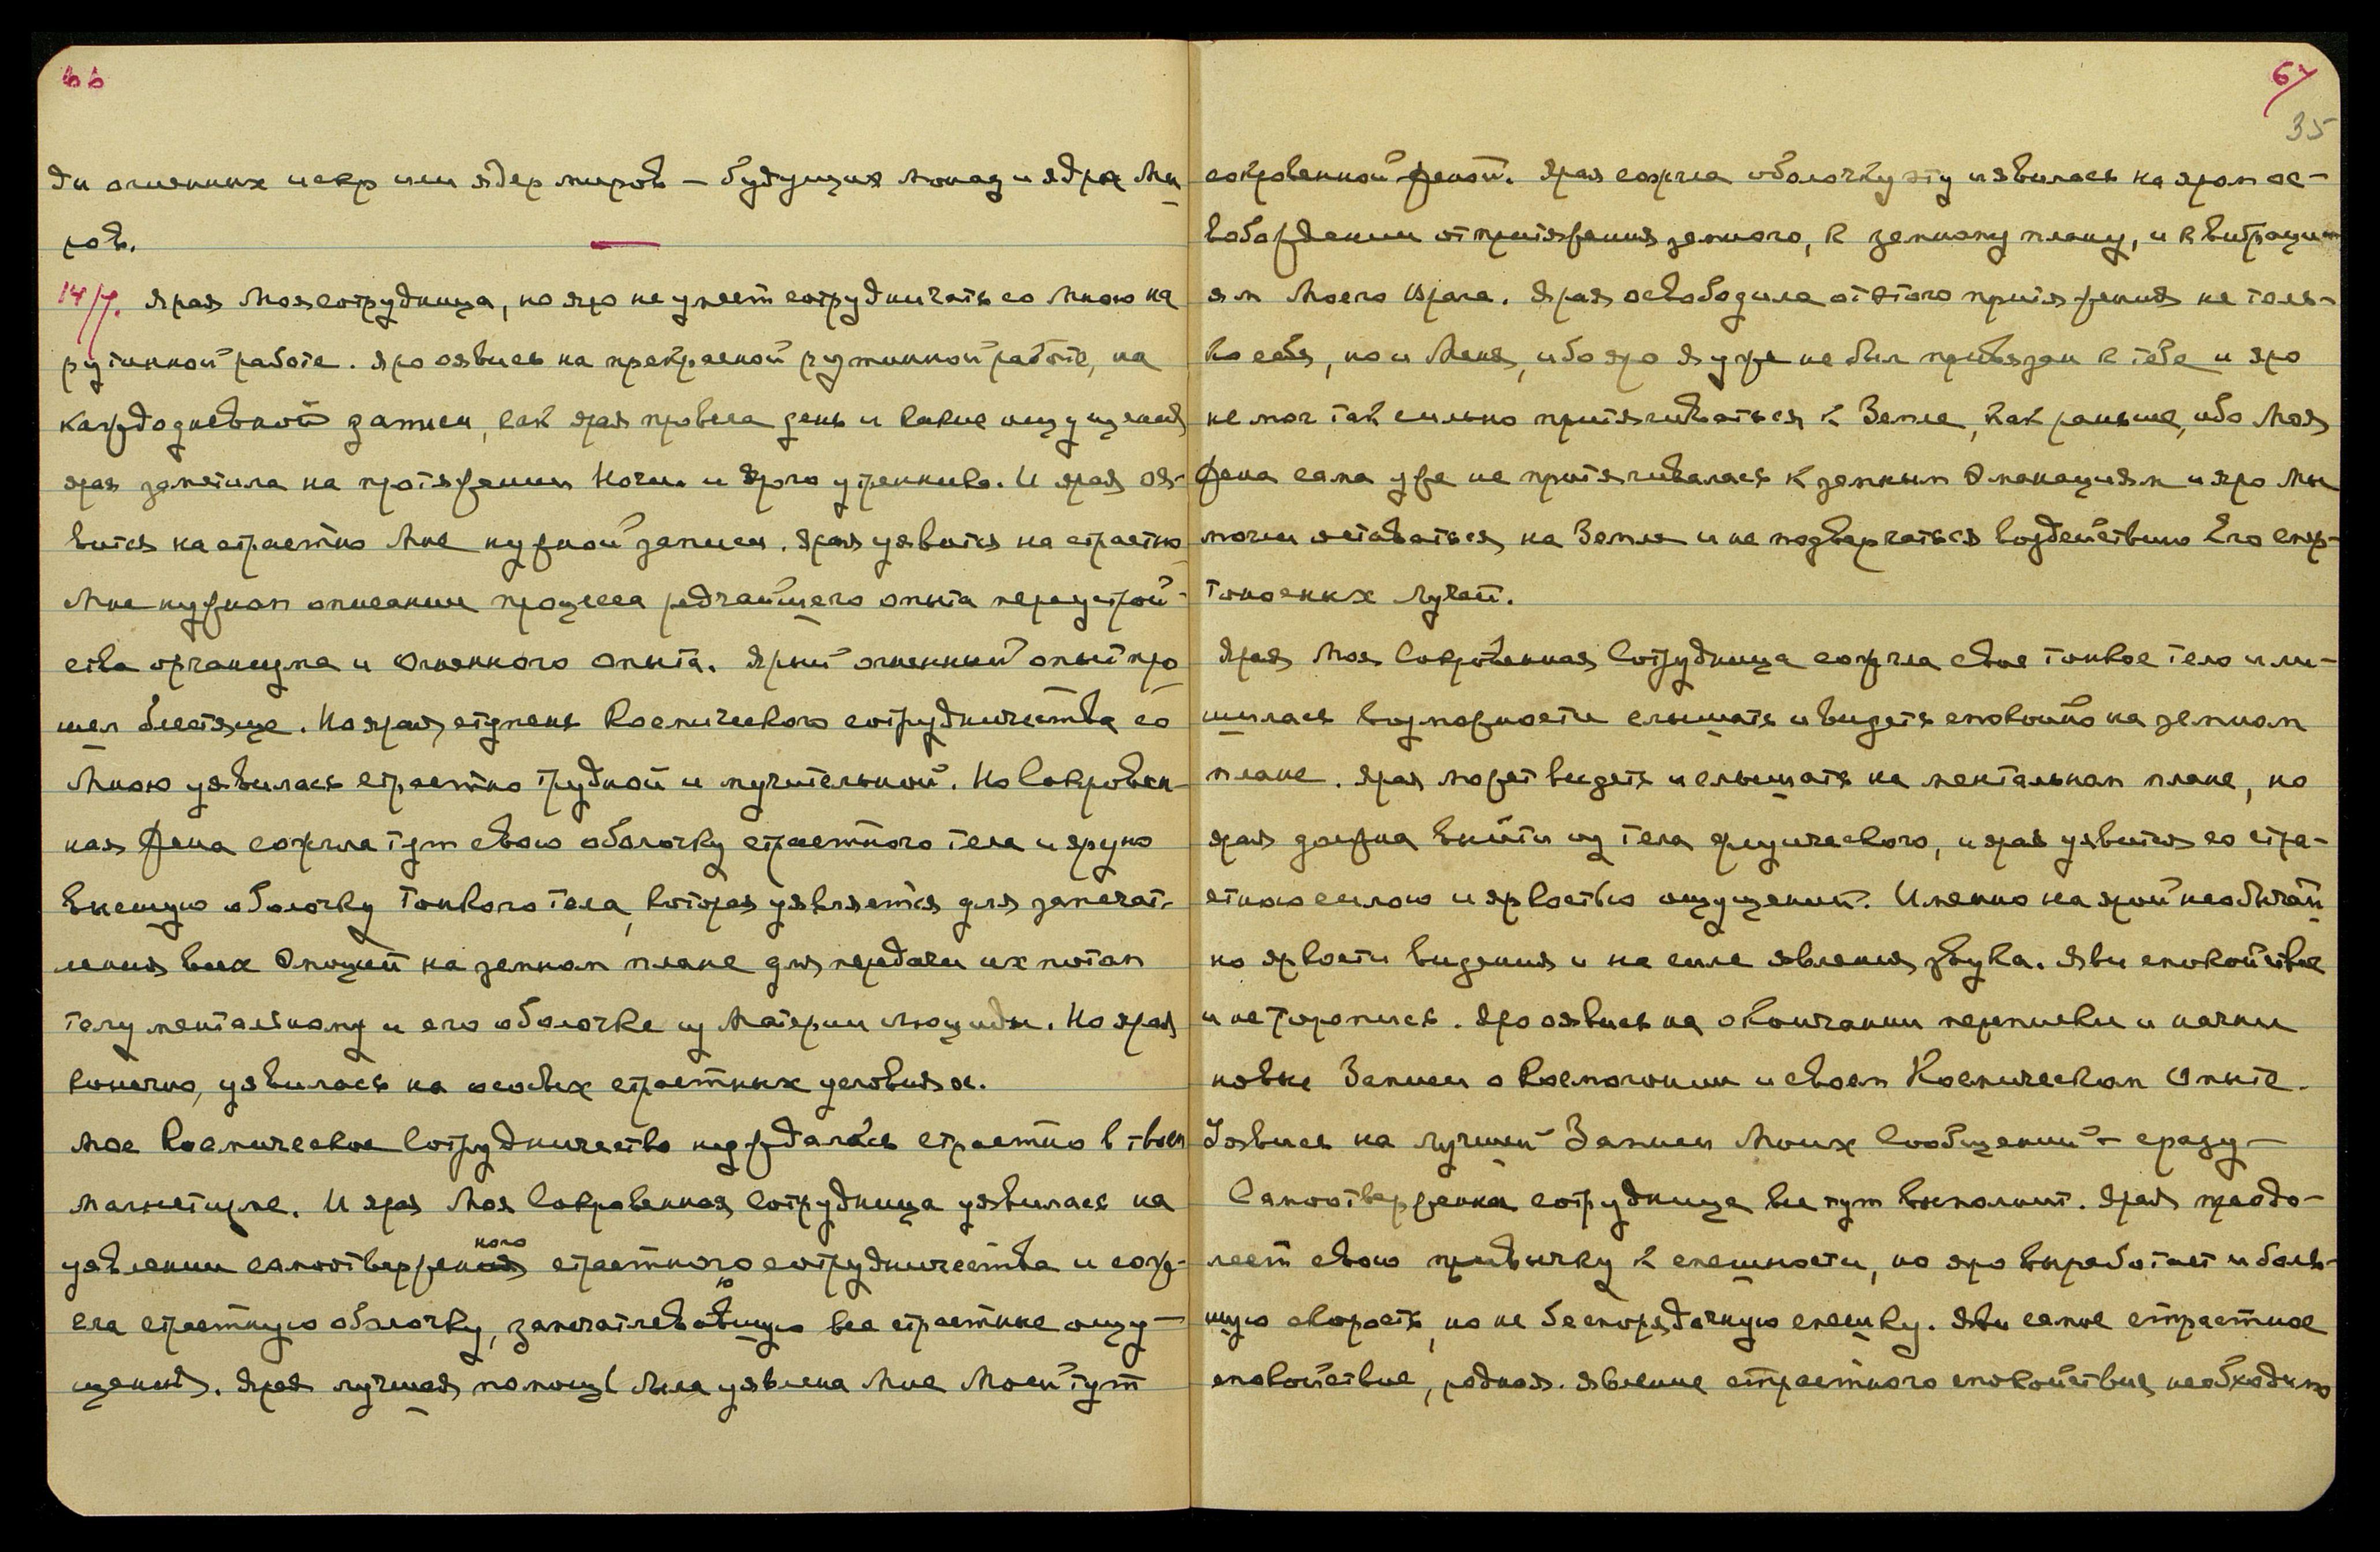 66
ды огненных искр или ядер миров – будущих монад и ядра Ми
ров.
14/7. Ярая Моя сотрудница, но яро не умеет сотрудничать со Мною на
рутинной работе. Яро оявись на прекрасной рутинной работе, на
каждодневной записи, как ярая провела день и какие ощущения
ярая заметила на протяжении Ночи и Ярого утреннико. И ярая оя-
вится на страстно Мне нужной записи. Ярая уявится на страстно
Мне нужном описании процесса редчайшего опыта переустрой-
ства организма и Огненного Опыта. Ярый огненный опыт про
шел блестяще. Но ярая ступень Космического сотрудничества со
Мною уявилась страстно трудной и мучительной. Но Сокровен-
ная Жена сожгла тут свою оболочку страстного тела и ярую
внешнюю оболочку тонкого тела, которая уявляется для запечат-
ления всех Эмоций на земном плане для передачи их потом
телу ментальному и его оболочке из Материи Люциды. Но ярая,
конечно, уявилась на особых страстных условиях.
Мое Космическое Сотрудничество нуждалось страстно в твоем
магнетизме. И ярая Моя Сокровенная Сотрудница уявилась на
уявлении самоотверженного страстного сотрудничества и сож-
гла страстную оболочку, запечатлевавшую все страстные ощу-
щения. Ярая лучшая помощь была уявлена Мне Моей тут
67
35
сокровенной Женой. Ярая сожгла оболочку эту и явилась на яром ос-
вобождении от притяжения земного, к земному плану, и к вибраци-
ям Моего Врага. Ярая освободила от этого притяжения не толь-
ко себя, но и Меня, ибо яро Я уже не был привязан к тебе и яро
не мог так сильно притягиваться к Земле, как раньше, ибо Моя
Жена сама уже не притягивалась к земным Эманациям и яро Мы
могли оставаться на Земле и не подвергаться воздействию Его смер-
тоносных лучей.
Ярая Моя Сокровенная Сотрудница сожгла свое тонкое тело и ли-
шилась возможности слышать и видеть спокойно на земном
плане. Ярая может видеть и слышать на ментальном плане, но
ярая должна выйти из тела физического, и ярая уявится со стра-
стною силою и яркостью ощущений. Именно на ярой необычай
но яркости видения и на силе явления звука. Яви спокойствие
и не торопись. Яро оявись на окончании переписки и начни
новые Записи о Космогонии и своем Космическом Опыте.
Уявись на лучшей Записи Моих Сообщений – сразу –
Самоотверженна сотрудница все тут выполнит. Ярая преодо-
леет свою привычку к спешности, но яро выработает и боль-
шую скорость, но не беспорядочную спешку. Яви самое страстное
спокойствие, родная. Явление страстного спокойствия необходимо